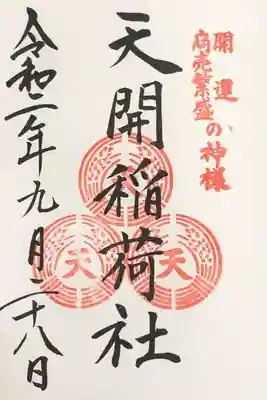 開運、
商売繁盛の神様
天開稲荷社
天
天
令和二年九月二十八日